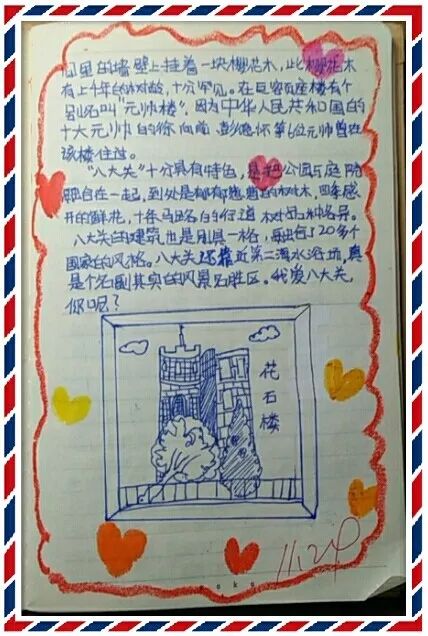 间里的墙壁上挂着一块樱花木，此樱花木
有上千年的树龄，十分罕见。在
别名叫"元帅楼"，因为中华人民共和国的
十大元帅的徐向前，彭德怀等6位元帅曾在
该楼住过。
"八大关"十分具有特色，是把公园与庭院
融合在一起，到处是郁郁葱葱的树木，四季盛
开的鲜花，十条马路的行道树品种各异。
八大关的建筑也是别具一格，
国家的风格。八大关还靠近第二海水浴场，真
是个名副其实的风景名胜区。我爱八大关，
你呢？
花石楼
11.24